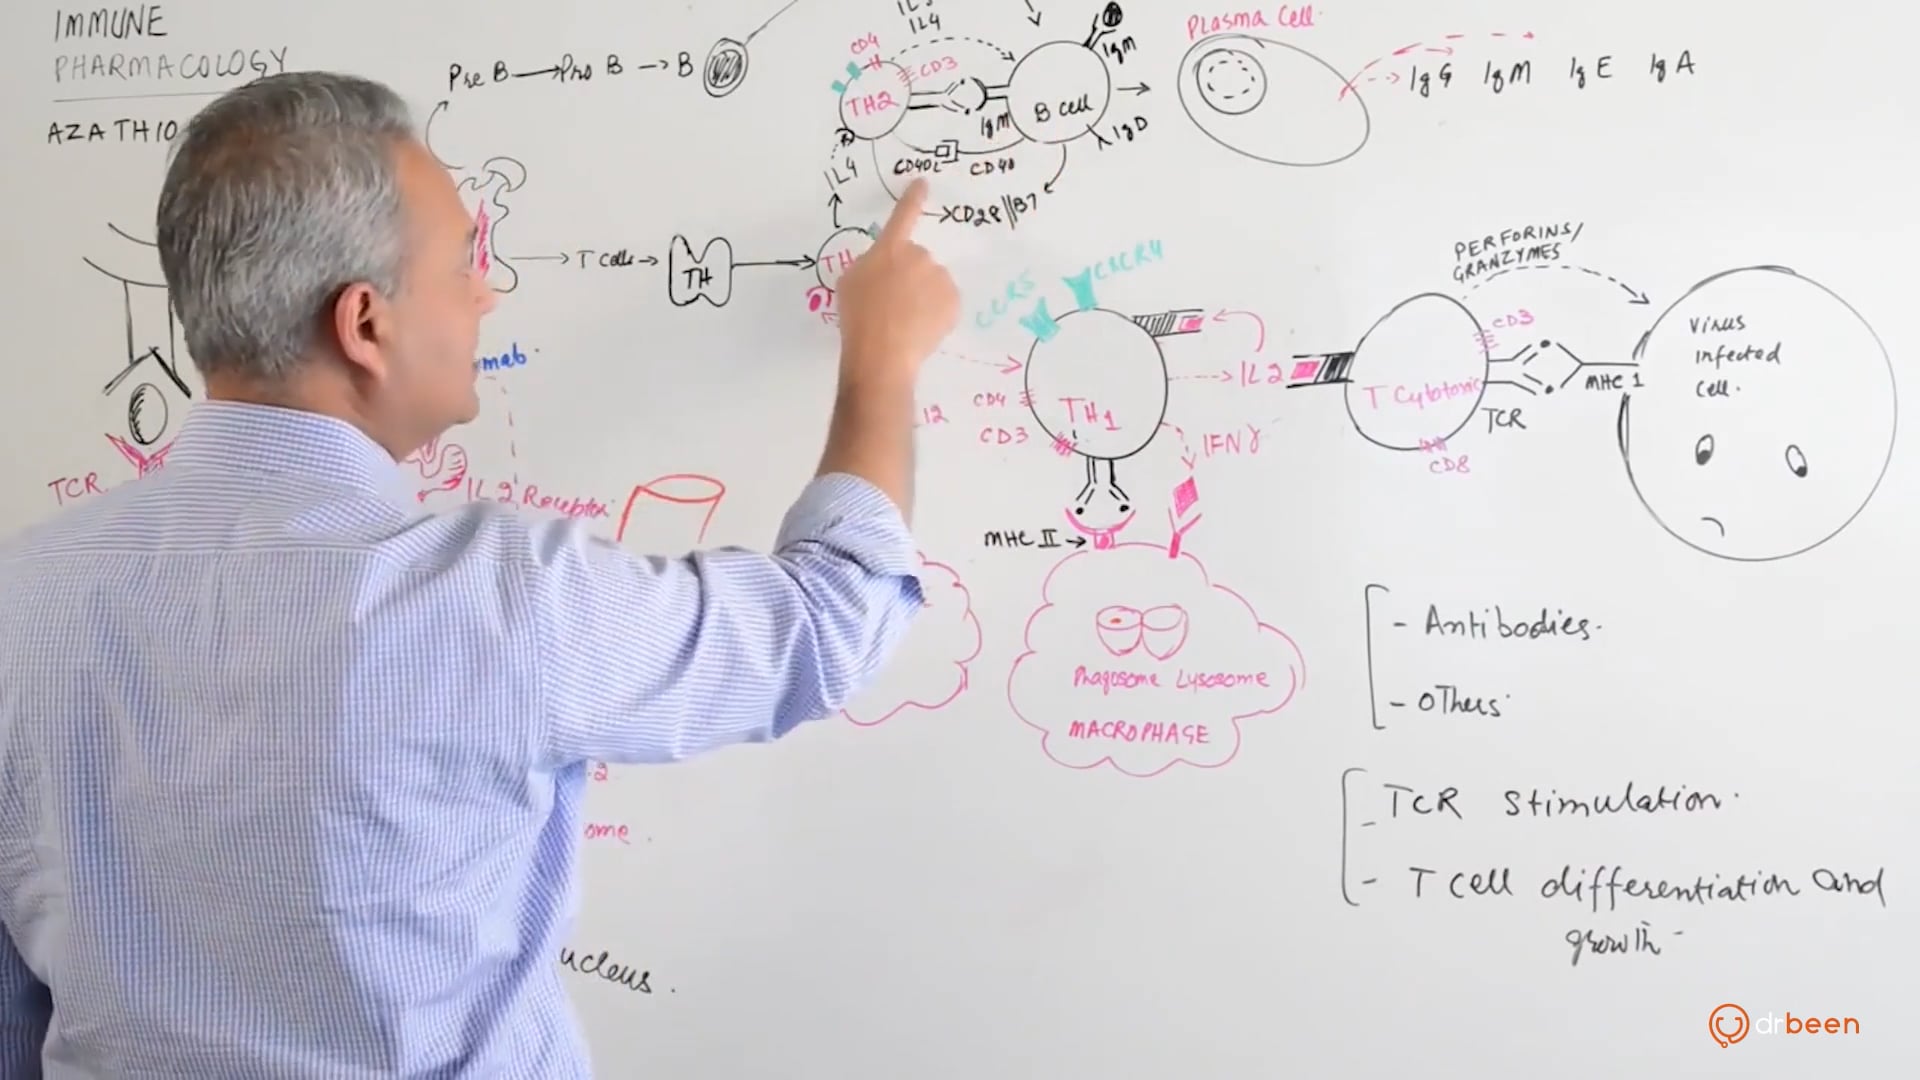 IMMUNE
PHARMACOLOGY
AZATHIO
Pre B → Pro B → B
IL4
CD4
CD3
TH2
IgM
B cell
IgM
IgD
CD40L
CD40
CD28 || B7
IL4
Plasma Cell
IgG IgM IgE IgA
T cells →
TH
TH
mab.
TCR
IL 2 Receptor
CCR5
CXCR4
CD4
CD3
TH1
12
IL 2
IFN γ
MHC II →
Phagosome Lysosome
MACROPHAGE
PERFORINS/
GRANZYMES
CD3
T Cytotoxic
TCR
CD8
MHC 1
Virus
infected
cell.
- Antibodies.
- Others
- TCR stimulation.
- T cell differentiation and
growth -
.2
ome.
ucleus.
drbeen